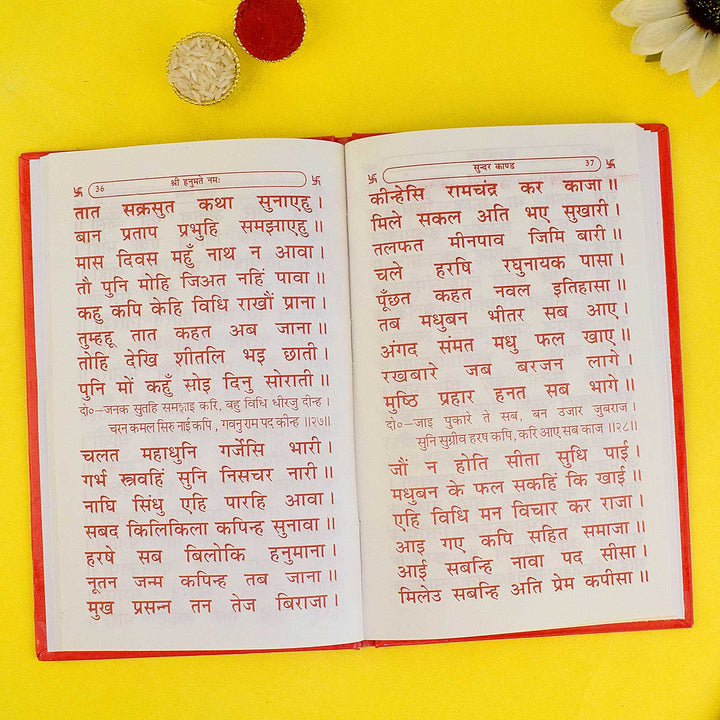 36 श्री हनुमते नमः
तात सक्रसुत कथा सुनाएहु ।
बान प्रताप प्रभुहि समझाएहु ॥
मास दिवस महुँ नाथ न आवा ।
तौ पुनि मोहि जिअत नहिं पावा ॥
कहु कपि केहि विधि राखौं प्राना ।
तुम्हहू तात कहत अब जाना ॥
तोहि देखि शीतलि भइ छाती ।
पुनि मों कहुँ सोइ दिनु सोराती ॥
दो०–जनक सुतहि समझाइ करि, बहु विधि धीरजु दीन्ह ।
चरन कमल सिरु नाई कपि , गवनु राम पद कीन्ह ॥२७॥
चलत महाधुनि गर्जेसि भारी ।
गर्भ स्त्रवहिं सुनि निसचर नारी ॥
नाघि सिंधु एहि पारहि आवा ।
सबद किलिकिला कपिन्ह सुनावा ॥
हरषे सब बिलोकि हनुमाना ।
नूतन जन्म कपिन्ह तब जाना ॥
मुख प्रसन्न तन तेज बिराजा ।
सुन्दर काण्ड 37
कीन्हेसि रामचंद्र कर काजा ॥
मिले सकल अति भए सुखारी ।
तलफत मीनपाव जिमि बारी ॥
चले हरषि रघुनायक पासा ।
पूँछत कहत नवल इतिहासा ॥
तब मधुबन भीतर सब आए ।
अंगद संमत मधु फल खाए ॥
रखबारे जब बरजन लागे ।
मुष्ठि प्रहार हनत सब भागे ॥
दो०–जाइ पुकारे ते सब, बन उजार जुबराज ।
सुनि सुग्रीव हरष कपि, करि आए सब काज ॥२८॥
जौं न होति सीता सुधि पाई ।
मधुबन के फल सकहिं कि खाई ॥
एहि विधि मन विचार कर राजा ।
आइ गए कपि सहित समाजा ॥
आई सबन्हि नावा पद सीसा ।
मिलेउ सबन्हि अति प्रेम कपीसा ॥